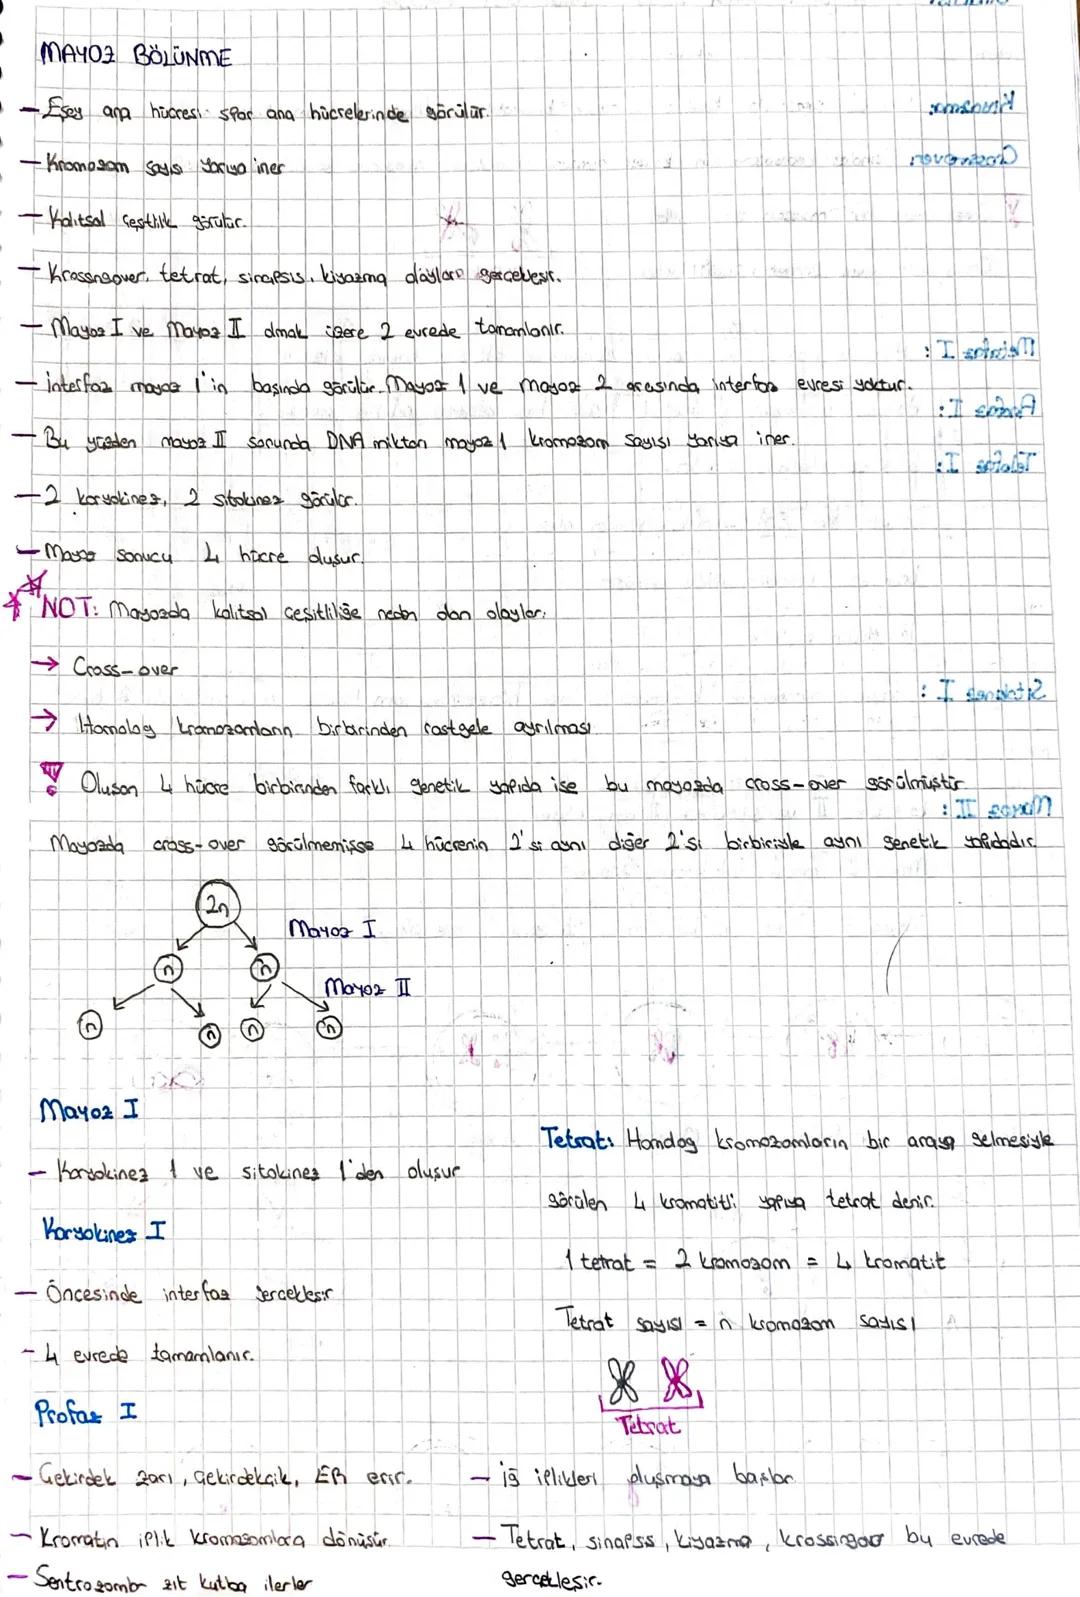 MAYOZ BÖLÜNME
- Eşey ana hücresi spor ana hücrelerinde görülür.
- Kromozom sayısı yarıya iner
- Kalıtsal çeşitlilik görülür.
- Krossingover, tetrat, sinapsis, kiyazma olayları gerçekleşir.
- Mayoz I ve Mayoz II olmak üzere 2 evrede tamamlanır.
- interfaz mayoz 1'in başında görülür. Mayoz 1 ve mayoz 2 arasında interfaz evresi yoktur.
- Bu yüzden mayoz II sonunda DNA miktarı mayoz 1 kromozom sayısı yarıya iner.
- 2 karyokinez, 2 sitokinez görülür.
- Mayoz sonucu 4 hücre oluşur.
NOT: Mayozda kalıtsal çeşitliliğe neden olan olaylar:
→ Cross-over
→ Homolog kromozomların birbirinden rastgele ayrılması
! Oluşan 4 hücre birbirinden farklı genetik yapıda ise bu mayozda cross-over görülmüştür
Mayozda cross-over görülmemişse 4 hücrenin 2'si aynı diğer 2'si birbiriyle aynı genetik yapıdadır.
2n
Mayoz I
n n
Mayoz II
n n n n
Mayoz I
- Karyokinez 1 ve sitokinez 1'den oluşur
Karyokinez I
- Öncesinde interfaz gerçekleşir
- 4 evrede tamamlanır.
Profaz I
- Çekirdek zarı, çekirdekçik, ER erir.
- Kromatin iplik kromozomlara dönüşür.
- Sentrozomlar zıt kutba ilerler
Tetrat: Homolog kromozomların bir araya gelmesiyle
görülen 4 kromatitli yapıya tetrat denir.
1 tetrat = 2 kromozom = 4 kromatit
Tetrat sayısı = n kromozom sayısı
Tetrat
- iğ iplikleri oluşmaya başlar
- Tetrat, sinapsis, kiyazma, krossingover bu evrede
gerçekleşir.